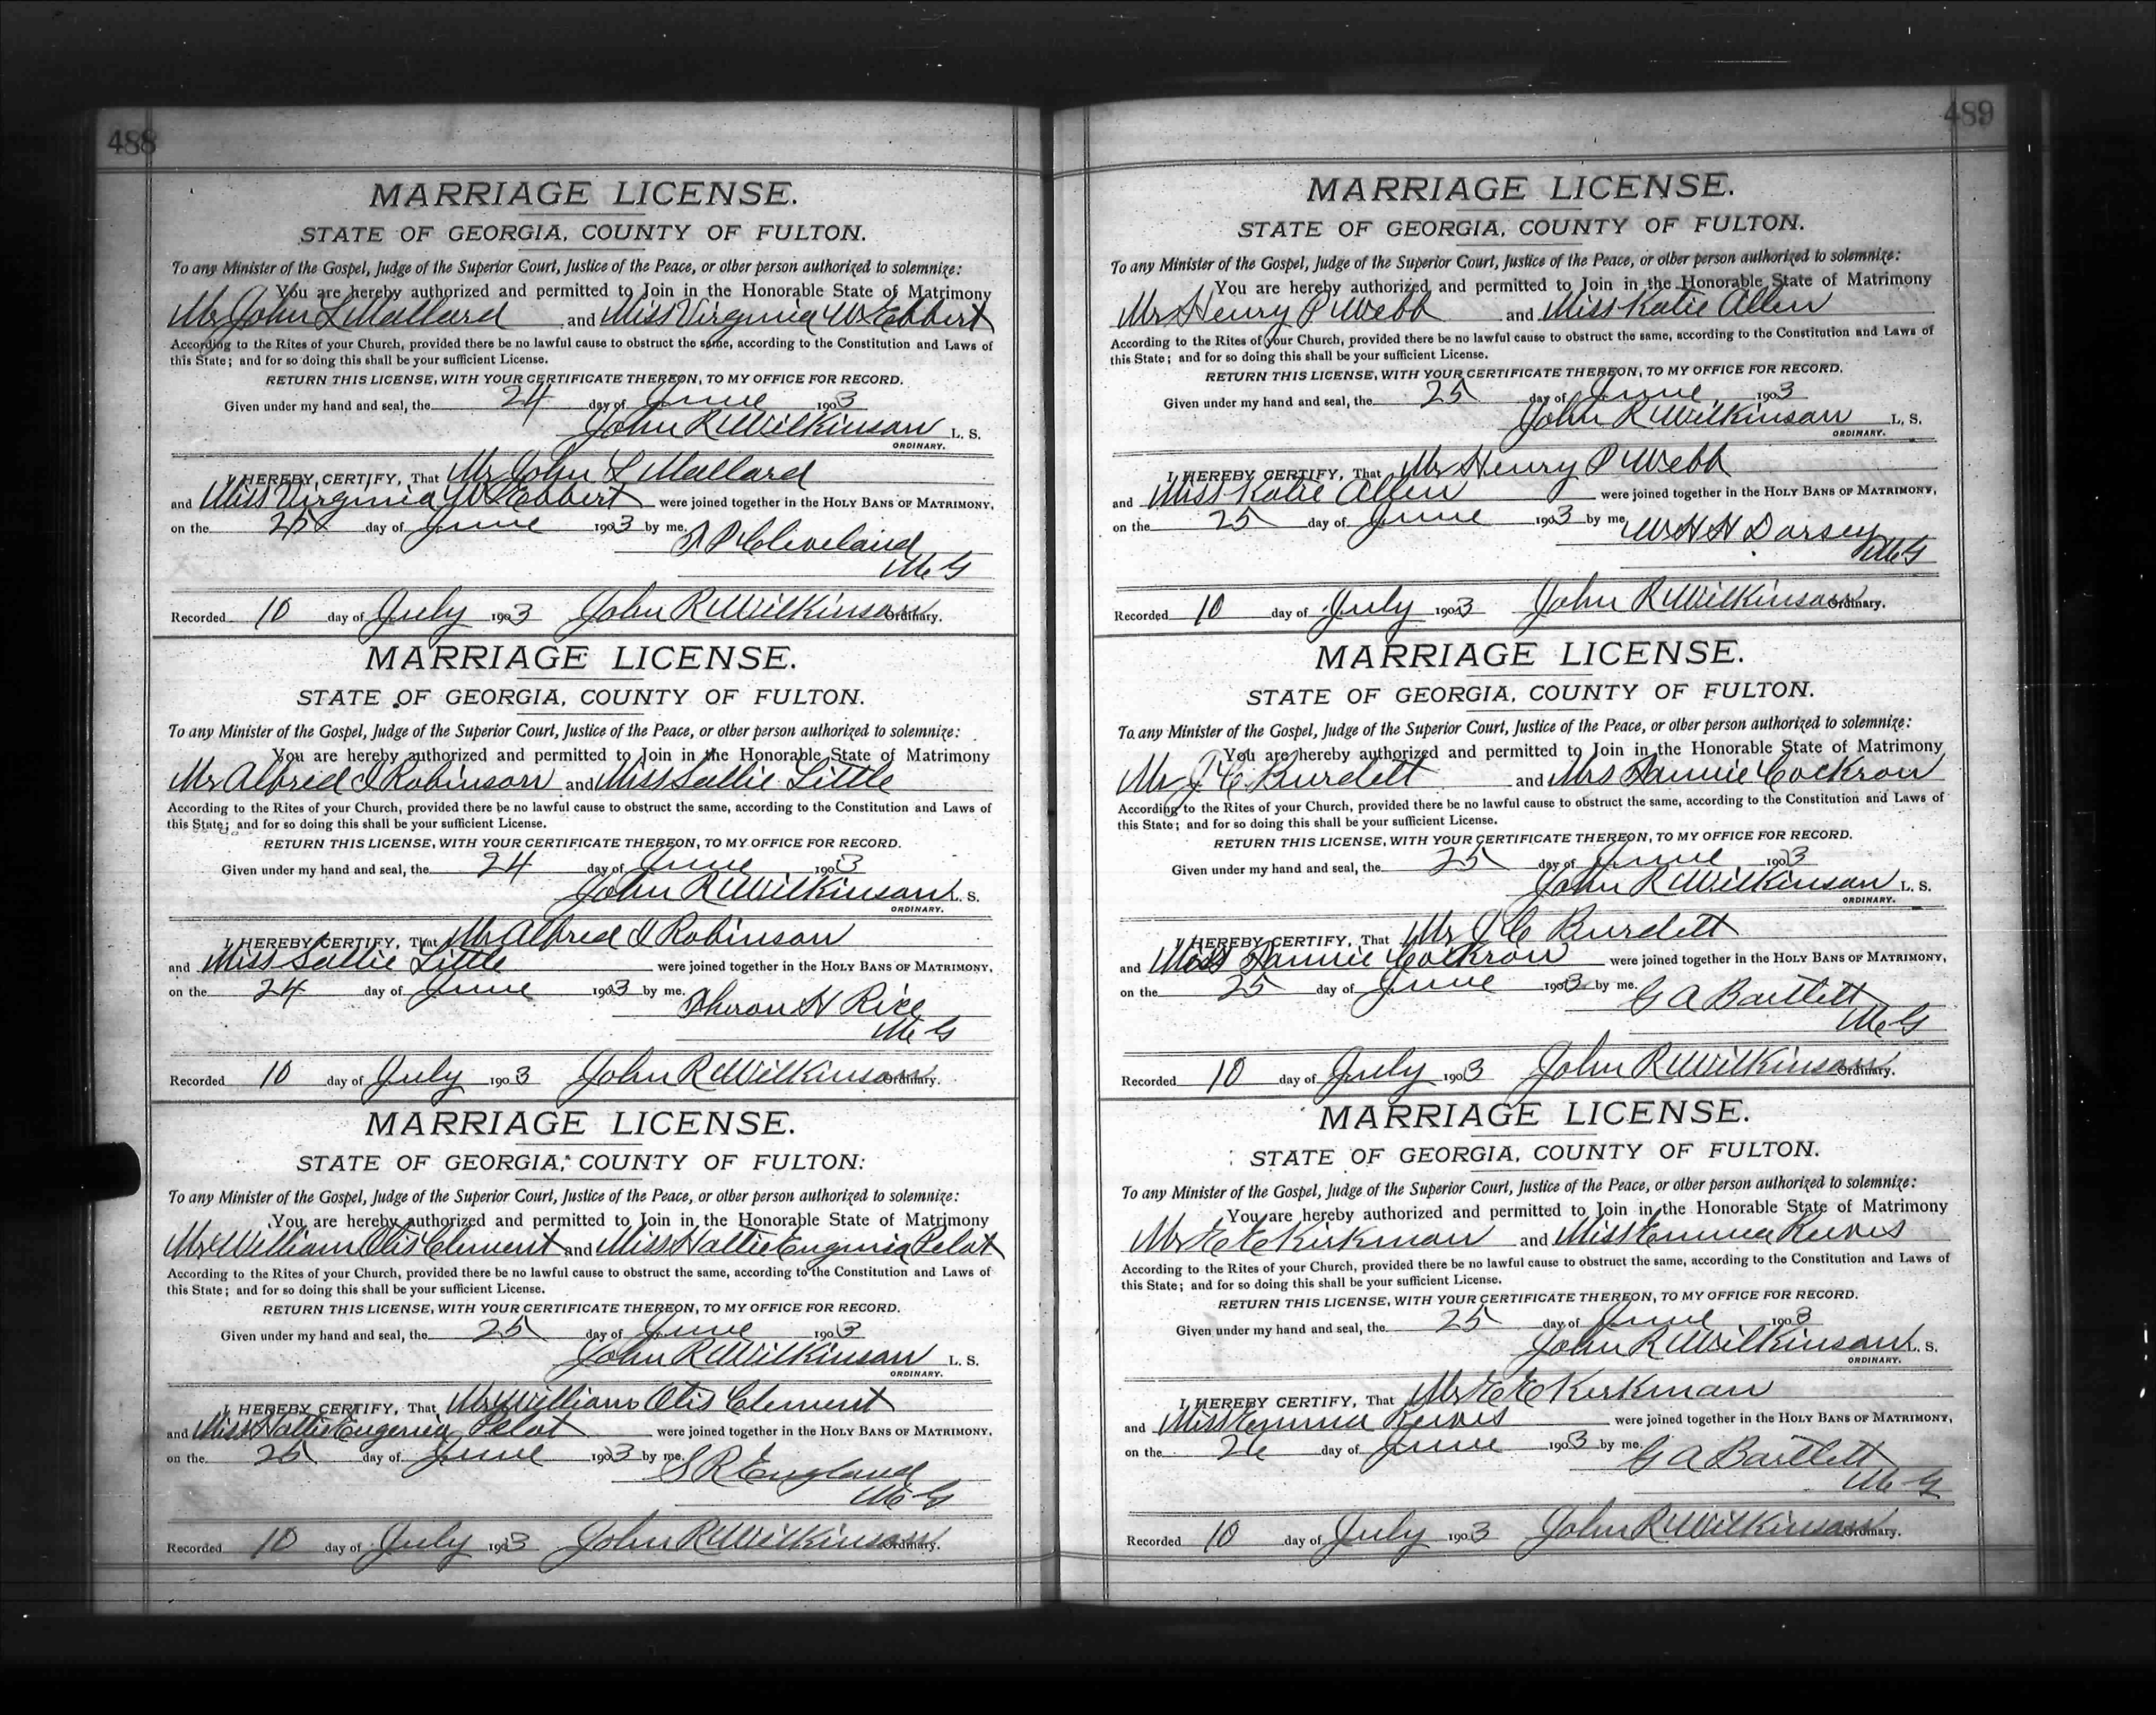 488
MARRIAGE LICENSE.
STATE OF GEORGIA, COUNTY OF FULTON.
To any Minister of the Gospel, Judge of the Superior Court, Justice of the Peace, or other person authorized to solemnize:
You are hereby authorized and permitted to Join in the Honorable State of Matrimony
Mr John L Mallard and Miss Virginia W Ebbert
According to the Rites of your Church, provided there be no lawful cause to obstruct the same, according to the Constitution and Laws of
this State; and for so doing this shall be your sufficient License.
RETURN THIS LICENSE, WITH YOUR CERTIFICATE THEREON, TO MY OFFICE FOR RECORD.
Given under my hand and seal, the 24 day of June 1903
John R Wilkinson L. S.
ORDINARY.
I HEREBY CERTIFY, That Mr John L Mallard
and Miss Virginia W Ebbert were joined together in the HOLY BANS OF MATRIMONY,
on the 25 day of June 1903 by me.
Cleveland
M G
Recorded 10 day of July 1903 John R Wilkinson Ordinary.
MARRIAGE LICENSE.
STATE OF GEORGIA, COUNTY OF FULTON.
To any Minister of the Gospel, Judge of the Superior Court, Justice of the Peace, or other person authorized to solemnize:
You are hereby authorized and permitted to Join in the Honorable State of Matrimony
Mr Alfred I Robinson and Miss Sallie Little
According to the Rites of your Church, provided there be no lawful cause to obstruct the same, according to the Constitution and Laws of
this State; and for so doing this shall be your sufficient License.
RETURN THIS LICENSE, WITH YOUR CERTIFICATE THEREON, TO MY OFFICE FOR RECORD.
Given under my hand and seal, the 24 day of June 1903
John R Wilkinson L. S.
ORDINARY.
I HEREBY CERTIFY, That Mr Alfred I Robinson
and Miss Sallie Little were joined together in the HOLY BANS OF MATRIMONY,
on the 24 day of June 1903 by me.
Theron H Rice
M G
Recorded 10 day of July 1903 John R Wilkinson Ordinary.
MARRIAGE LICENSE.
STATE OF GEORGIA, COUNTY OF FULTON.
To any Minister of the Gospel, Judge of the Superior Court, Justice of the Peace, or other person authorized to solemnize:
You are hereby authorized and permitted to Join in the Honorable State of Matrimony
Mr William Otis Clement and Miss Hattie Eugenia Pelot
According to the Rites of your Church, provided there be no lawful cause to obstruct the same, according to the Constitution and Laws of
this State; and for so doing this shall be your sufficient License.
RETURN THIS LICENSE, WITH YOUR CERTIFICATE THEREON, TO MY OFFICE FOR RECORD.
Given under my hand and seal, the 25 day of June 1903
John R Wilkinson L. S.
ORDINARY.
I HEREBY CERTIFY, That Mr William Otis Clement
and Miss Hattie Eugenia Pelot were joined together in the HOLY BANS OF MATRIMONY,
on the 25 day of June 1903 by me.
S R England
M G
Recorded 10 day of July 1903 John R Wilkinson Ordinary.
489
MARRIAGE LICENSE.
STATE OF GEORGIA, COUNTY OF FULTON.
To any Minister of the Gospel, Judge of the Superior Court, Justice of the Peace, or other person authorized to solemnize:
You are hereby authorized and permitted to Join in the Honorable State of Matrimony
Mr Henry P Webb and Miss Katie Allen
According to the Rites of your Church, provided there be no lawful cause to obstruct the same, according to the Constitution and Laws of
this State; and for so doing this shall be your sufficient License.
RETURN THIS LICENSE, WITH YOUR CERTIFICATE THEREON, TO MY OFFICE FOR RECORD.
Given under my hand and seal, the 25 day of June 1903
John R Wilkinson L. S.
ORDINARY.
I HEREBY CERTIFY, That Mr Henry P Webb
and Miss Katie Allen were joined together in the HOLY BANS OF MATRIMONY,
on the 25 day of June 1903 by me
W H H Dorsey
M G
Recorded 10 day of July 1903 John R Wilkinson Ordinary.
MARRIAGE LICENSE.
STATE OF GEORGIA, COUNTY OF FULTON.
To any Minister of the Gospel, Judge of the Superior Court, Justice of the Peace, or other person authorized to solemnize:
You are hereby authorized and permitted to Join in the Honorable State of Matrimony
Mr J C Burdett and Mrs Fannie Cockron
According to the Rites of your Church, provided there be no lawful cause to obstruct the same, according to the Constitution and Laws of
this State; and for so doing this shall be your sufficient License.
RETURN THIS LICENSE, WITH YOUR CERTIFICATE THEREON, TO MY OFFICE FOR RECORD.
Given under my hand and seal, the 25 day of June 1903
John R Wilkinson L. S.
ORDINARY.
I HEREBY CERTIFY, That Mr J C Burdett
and Fannie Cockron were joined together in the HOLY BANS OF MATRIMONY,
on the 25 day of June 1903 by me.
G A Bartlett
M G
Recorded 10 day of July 1903 John R Wilkinson Ordinary.
MARRIAGE LICENSE.
STATE OF GEORGIA, COUNTY OF FULTON.
To any Minister of the Gospel, Judge of the Superior Court, Justice of the Peace, or other person authorized to solemnize:
You are hereby authorized and permitted to Join in the Honorable State of Matrimony
Mr E E Kirkman and Miss Emma Reeves
According to the Rites of your Church, provided there be no lawful cause to obstruct the same, according to the Constitution and Laws of
this State; and for so doing this shall be your sufficient License.
RETURN THIS LICENSE, WITH YOUR CERTIFICATE THEREON, TO MY OFFICE FOR RECORD.
Given under my hand and seal, the 25 day of June 1903
John R Wilkinson L. S.
ORDINARY.
I HEREBY CERTIFY, That Mr E E Kirkman
and Miss Emma Reeves were joined together in the HOLY BANS OF MATRIMONY,
on the 26 day of June 1903 by me.
G A Bartlett
M G
Recorded 10 day of July 1903 John R Wilkinson Ordinary.